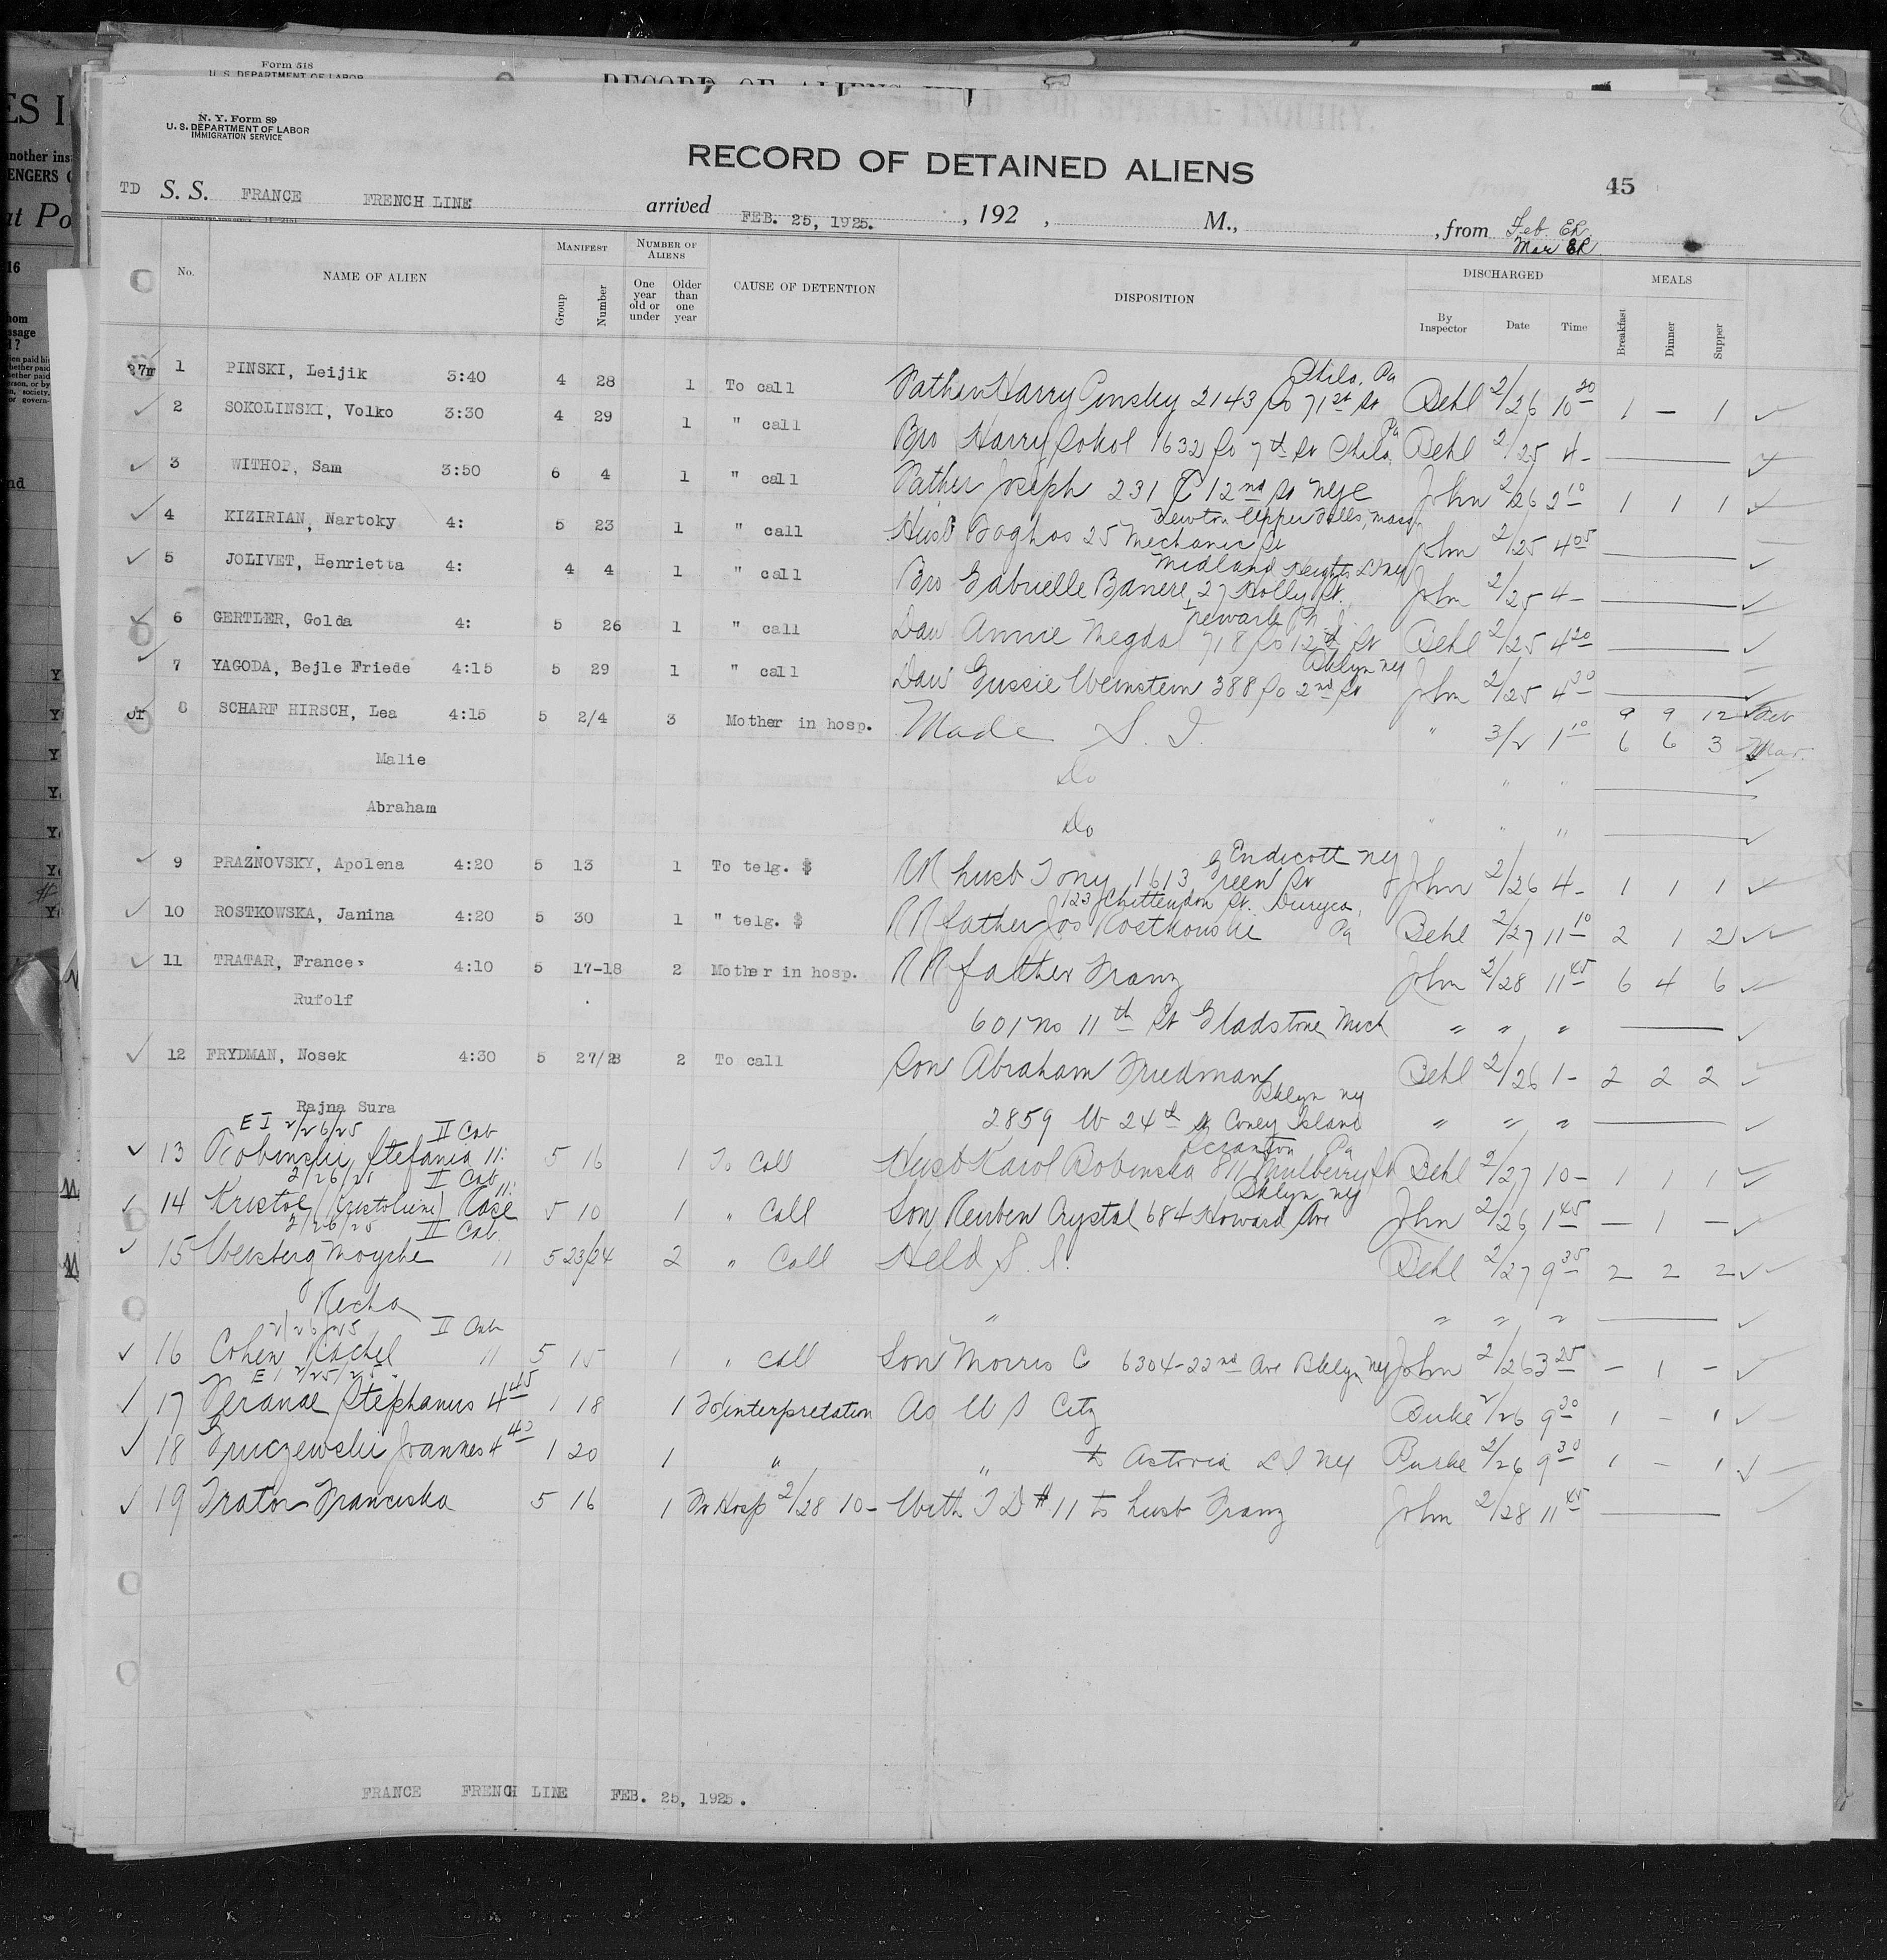 Form 518
U. S. DEPARTMENT OF LABOR
RECORD OF ALIENS HELD FOR SPECIAL INQUIRY.
N. Y. Form 89
U. S. DEPARTMENT OF LABOR
IMMIGRATION SERVICE
RECORD OF DETAINED ALIENS
45
TD S. S. FRANCE FRENCH LINE arrived FEB. 25, 1925. , 192 , M., , from Feb. ER
Mar ER.
No. NAME OF ALIEN MANIFEST NUMBER OF ALIENS CAUSE OF DETENTION DISPOSITION DISCHARGED MEALS
Group Number One year old or under Older than one year By Inspector Date Time Breakfast Dinner Supper
Phila, Pa
1 PINSKI, Leijik 3:40 4 28 1 To call Father Harry Pinsky 2143 So 71st St Behl 2/26 10 20 1 — 1
2 SOKOLINSKI, Volko 3:30 4 29 1 " call Bro Harry Sokol 1632 So 7th St Phila, Pa Behl 2/25 4-
3 WITHOP, Sam 3:50 6 4 1 " call Father Joseph 231 E 12nd St NYC John 2/26 2 10 1 1 1
Newton Upper Falls, Mass
4 KIZIRIAN, Nartoky 4: 5 23 1 " call Husb Boghos 25 Mechanic St John 2/25 4 05
Midland Heights
5 JOLIVET, Henrietta 4: 4 4 1 " call Bro Gabrielle Banere, 27 Holly St. John 2/25 4-
Newark
6 GERTLER, Golda 4: 5 26 1 " call Dau Annie Megdal 718 So 12th St Behl 2/25 4 20
Bklyn NY
7 YAGODA, Bejle Friede 4:15 5 29 1 " call Dau Gussie Weinstein 388 So 2nd St John 2/25 4 30
8 SCHARF HIRSCH, Lea 4:15 5 2/4 3 Mother in hosp. Made S. I. " 3/2 1 10 9 9 12 Feb
6 6 3 Mar.
Malie Do " " "
Abraham Do " " "
Endicott NY
9 PRAZNOVSKY, Apolena 4:20 5 13 1 To telg. $ RR husb Tony 1613 Green St John 2/26 4- 1 1 1
123 Chittendon St. Duryea,
10 ROSTKOWSKA, Janina 4:20 5 30 1 " telg. $ RR father Jos Rostkouski Pa Behl 2/27 11 10 2 1 2
11 TRATAR, Frances 4:10 5 17-18 2 Mother in hosp. RR father Franz John 2/28 11 45 6 4 6
Rufolf 601 no 11th St Gladstone Mich " " "
12 FRYDMAN, Nosek 4:30 5 27/28 2 To call Son Abraham Friedman Behl 2/26 1- 2 2 2
Bklyn NY
Rajna Sura 2859 W 24th St Coney Island " " "
E I 2/26/25 II Cab Scranton Pa
13 Robinski, Stefania 11: 5 16 1 To Call Husb Karol Bobinska 811 Mulberry St Behl 2/27 10- 1 1 1
2/26/25 II Cab Bklyn NY
14 Kristol (Kristoliene) Rose 11: 5 10 1 " Call Son Reuben Crystal 684 Howard Ave John 2/26 1 45 — 1 —
2/26/25 II Cab.
15 Weksberg Moyshe 11 5 23/24 2 " Call Held S. I. Behl 2/27 9 35 2 2 2
Recha " " " "
2/26/25 II Cab
16 Cohen Rachel 11 5 15 1 " call Son Morris C 6304-22nd Ave Bklyn NY John 2/26 3 25 — 1 —
E I 2/25/25.
17 Stephanus 4 45 1 18 1 To interpretation As U S City Burke 2/26 9 30 1 — 1
18 Gruczewski Joannes 4 40 1 20 1 " " to Astoria L I NY Burke 2/26 9 30 1 — 1
19 Trator Franciska 5 16 1 Fr Hosp 2/28 10- With T D #11 to husb Franz John 2/28 11 45
FRANCE FRENCH LINE FEB. 25, 1925.